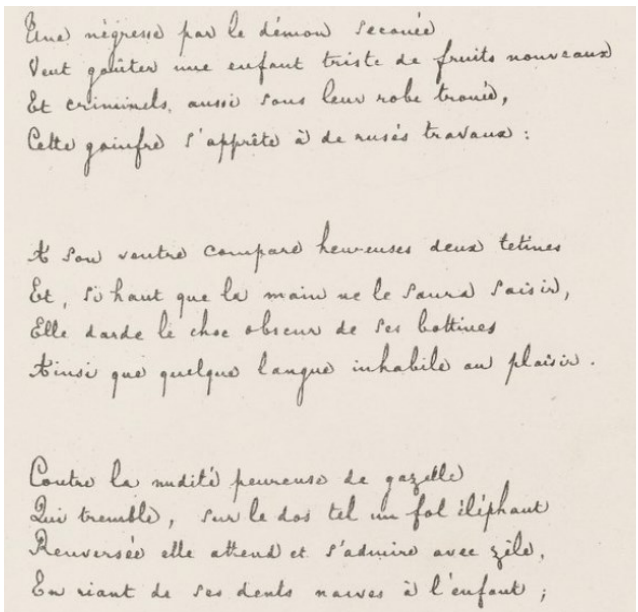 Une négresse par le démon secouée
Veut goûter une enfant triste de fruits nouveaux
Et criminels, aussi sous leur robe trouée,
Cette goinfre s'apprête à de rusés travaux :
A son ventre compare heureuses deux tetines
Et, si haut que la main ne le saura saisir,
Elle darde le choc obscur de ses bottines
Ainsi que quelque langue inhabile au plaisir.
Contre la nudité peureuse de gazelle
Qui tremble, sur le dos tel un fol éléphant
Renversée elle attend et s'admire avec zèle,
En riant de ses dents naïves à l'enfant ;